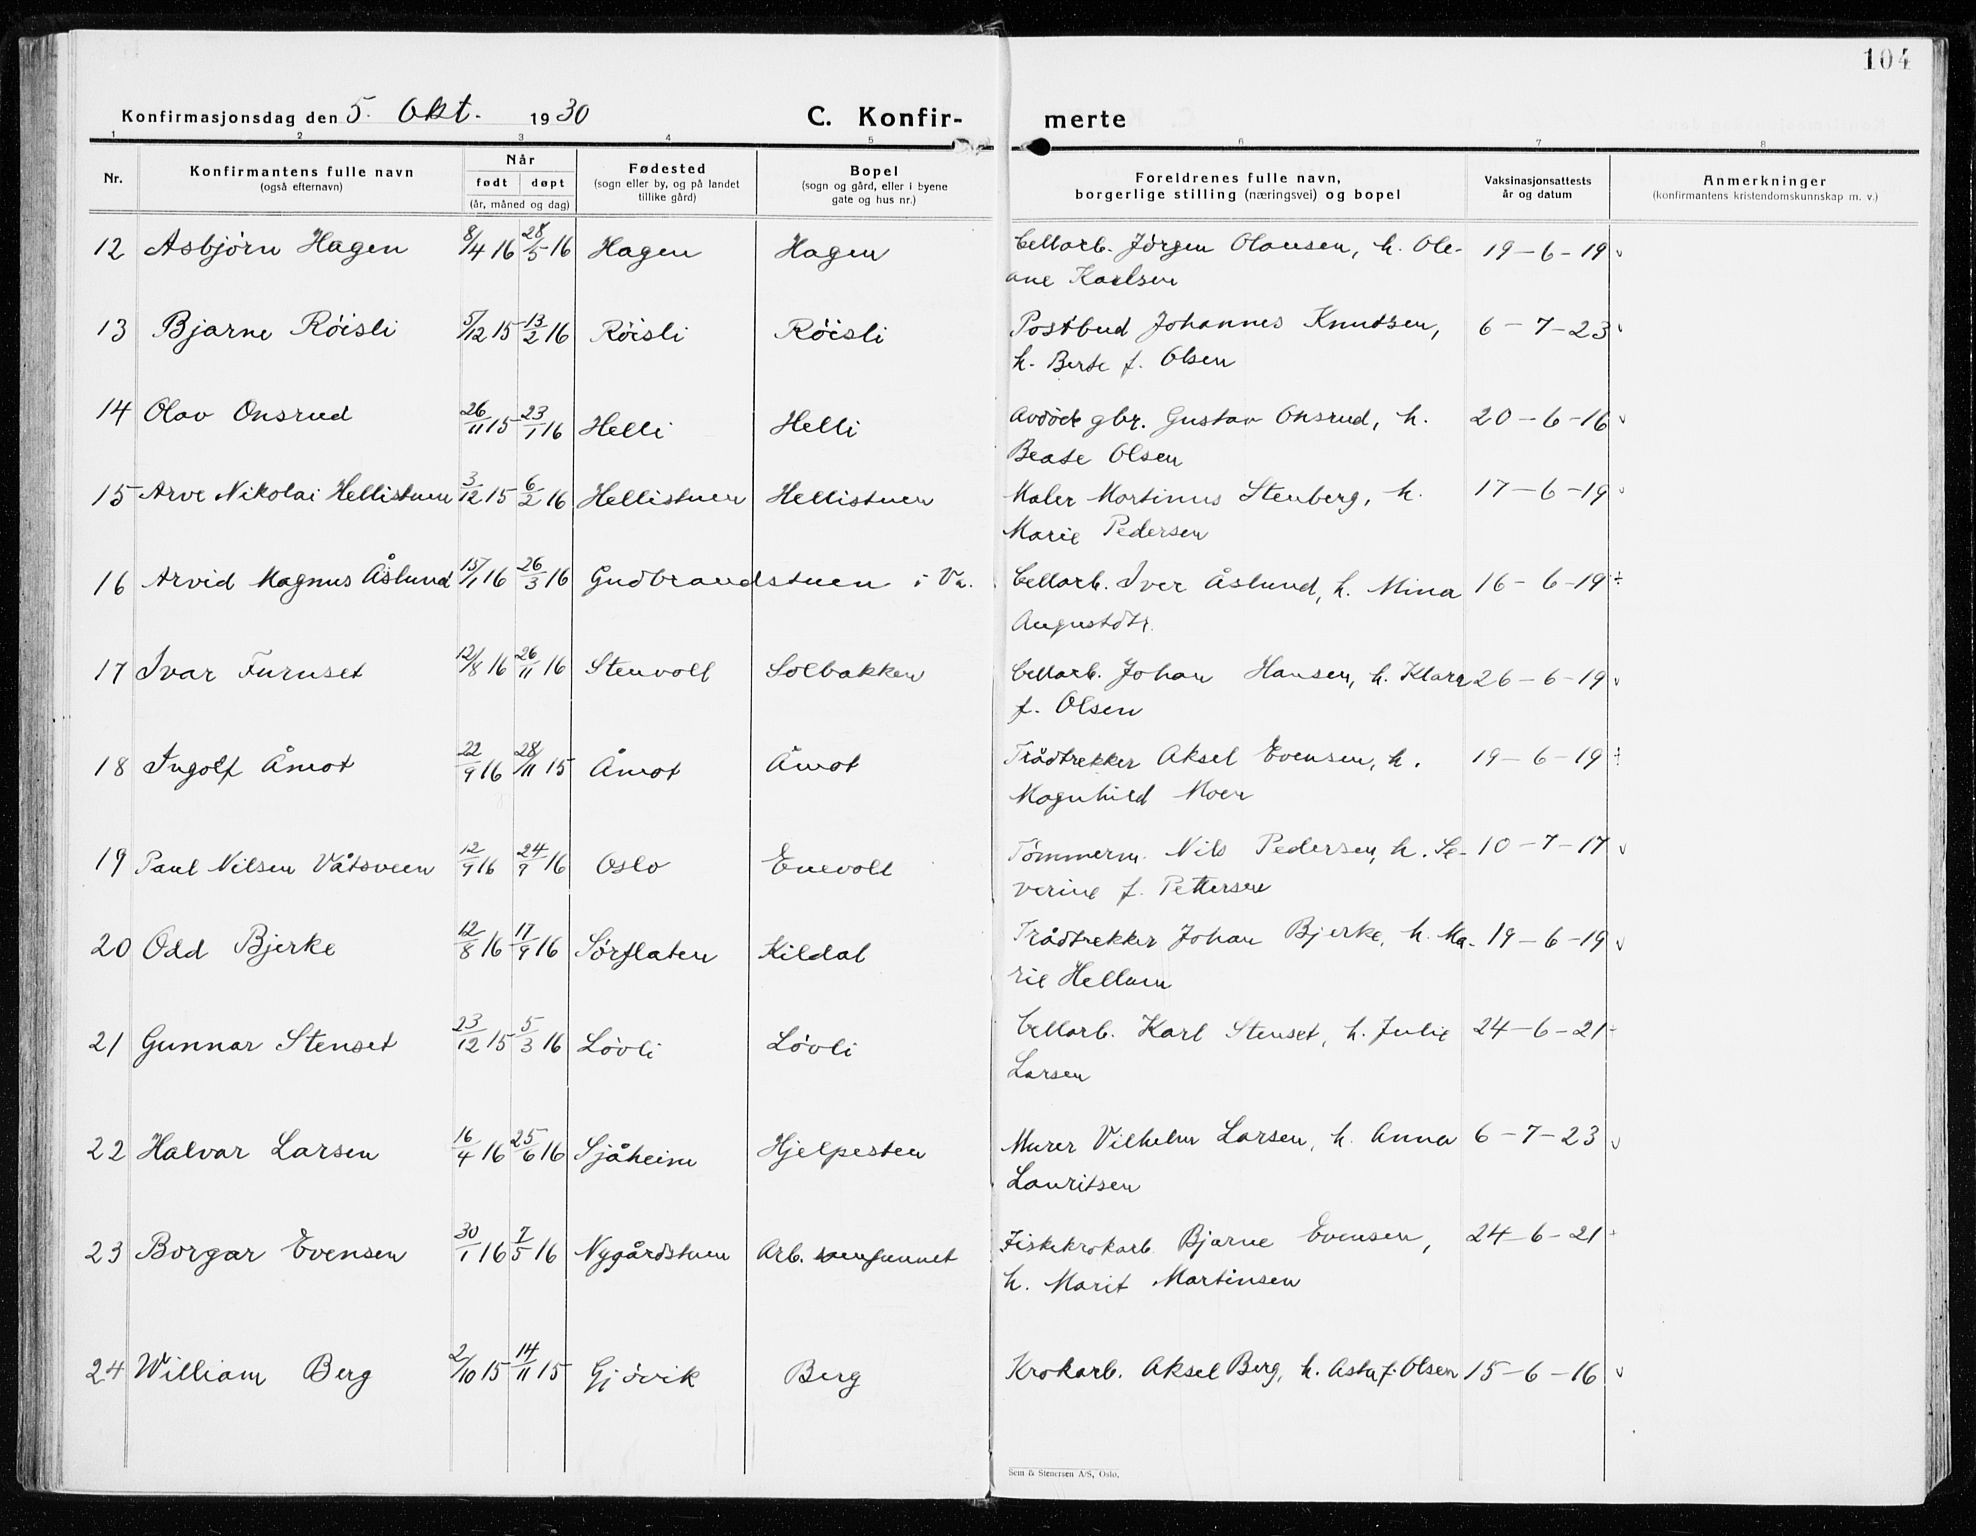 104
Konfirmasjonsdag den 5. Okt. 1930
C. Konfir- merte
1 2 3 4 5 6 7 8
Nr. Konfirmantens fulle navn (også efternavn) Når født døpt (år, måned og dag) Fødested (sogn eller by, og på landet tillike gård) Bopel (sogn og gård, eller i byene gate og hus nr.) Foreldrenes fulle navn, borgerlige stilling (næringsvei) og bopel Vaksinasjonsattests år og datum Anmerkninger (konfirmantens kristendomskunnskap m. v.)
12 Asbjørn Hagen 8/4 16 28/5 16 Hagen Hagen Cellarb. Jørgen Olausen, h. Ole- 19-6-19 v
ane Karlsen
13 Bjarne Röisli 5/12 15 13/2 16 Röisli Röisli Postbud Johannes Knudsen, 6-7-23 v
h. Berte f. Olsen
14 Olav Onsrud 26/11 15 23/1 16 Helli Helli Avdöde gbr. Gustav Onsrud, h. 20-6-16 v
Beate Olsen
15 Arve Nikolai Hellistuen 3/12 15 6/2 16 Hellistuen Hellistuen Maler Martinus Stenberg, h. 17-6-19 v
Marie Pedersen
16 Arvid Magnus Åslund 15/1 16 26/3 16 Gudbrandstuen i Va. Cellarb. Iver Åslund, h. Mina 16-6-19 ÷
Augustdtr.
17 Ivar Furuset 12/8 16 26/11 16 Stenvoll Solbakken Cellarb. Johan Hansen, h. Klara 26-6-19 v
f. Olsen
18 Ingolf Åmot 22/9 16 28/11 15 Åmot Åmot Trådtrekker Aksel Evensen, h. 19-6-19 ÷
Magnhild Moen
19 Paul Nilsen Våtsveen 12/9 16 24/9 16 Oslo Enevoll Tømmerm. Nils Pedersen, h. Se- 10-7-17 v
verine f. Pettersen
20 Odd Bjerke 12/8 16 17/9 16 Sørflaten Kildal Trådtrekker Johan Bjerke, h. Ma- 19-6-19 v
rie Hellam
21 Gunnar Stenset 23/12 15 5/3 16 Lövli Lövli Cellarb. Karl Stenset, h. Julie 24-6-21 ÷
Larsen
22 Halvar Larsen 16/4 16 25/6 16 Sjåheim Hjelpesten Murer Vilhelm Larsen, h. Anna 6-7-23 v
Lauritsen
23 Borgar Evensen 30/1 16 7/5 16 Nygårdstuen Arb. samfunnet Fiskekrokarb. Bjarne Evensen, 24-6-21 ÷
h. Marit Martinsen
24 William Berg 2/10 15 14/11 15 Gjövik Berg Krokarb. Aksel Berg, h. Asta f. Olsen 15-6-16 v
Sem & Stenersen A/S, Oslo.